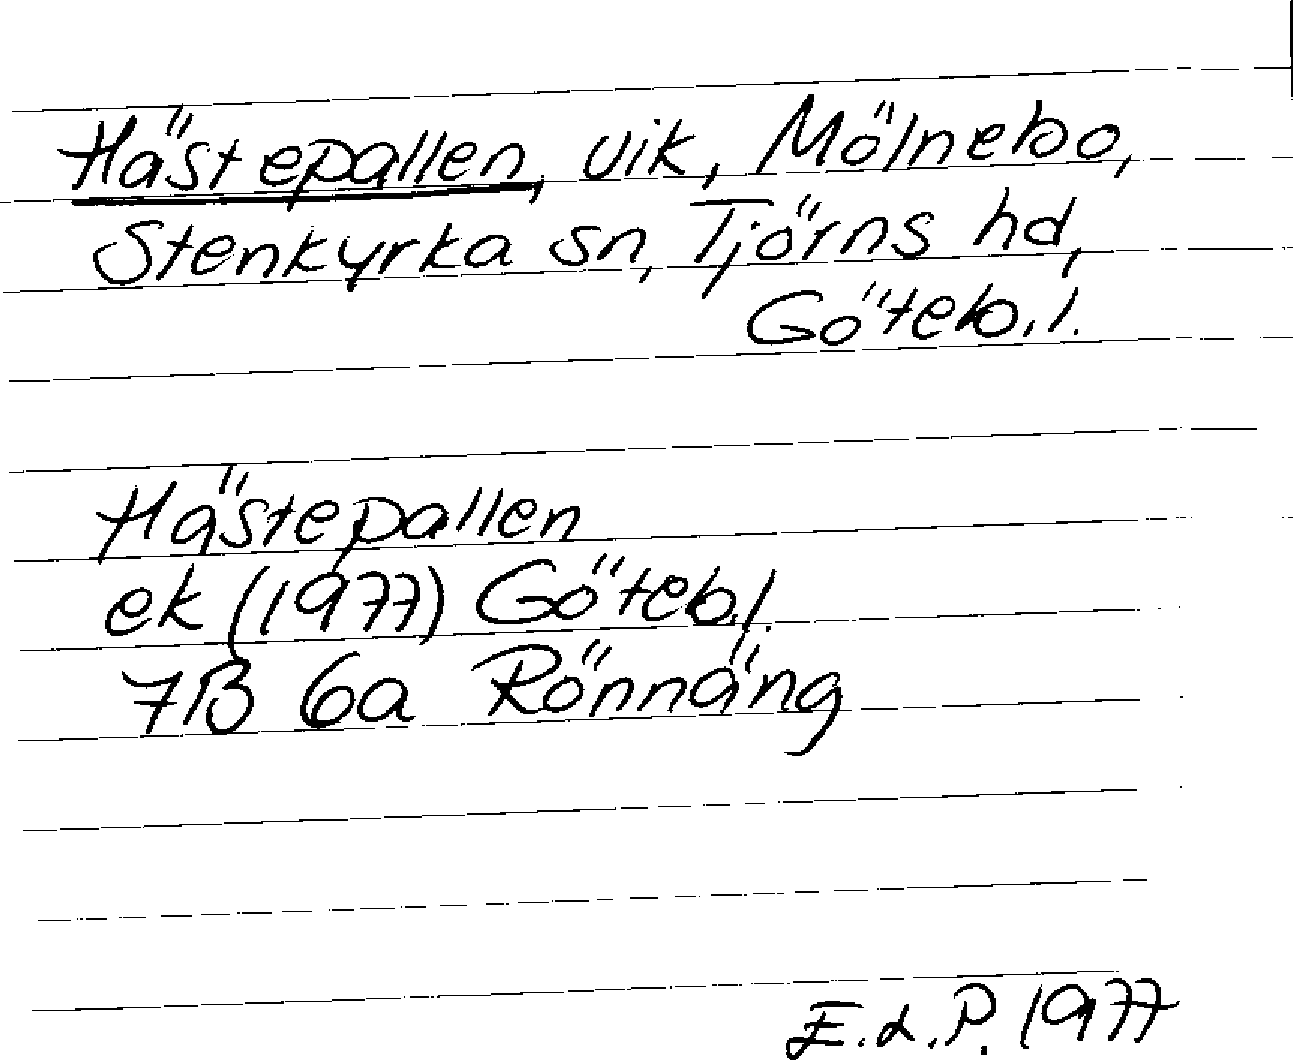 Hästepallen, vik, Mölnebo,
Stenkyrka sn, Tjörns hd,
Göteb. l.
Hästepallen
ek (1977) Göteb. l.
7B 6a Rönnäng
E.d.P. 1977